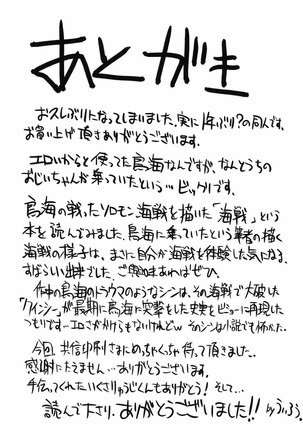 あとがき
お久しぶりになってしまいました、実に1年ぶり?の同人です、
お買い上げ頂きありがとうございます。
エロいからと使ってた鳥海なんですが、なんとうちの
おじいちゃんが乗っていたという…ビックリです。
鳥海の戦ったソロモン海戦を描いた「海戦」という
本を読んでみました。鳥海に乗っていたという筆者の描く
海戦の様子は、まさに自分が海戦を体験した気になる、
すばらしい出来でした。ご興味あればぜひ。
作中の鳥海のトラウマのようなシンは、その海戦で大破した
「クインシー」が最期に鳥海に突撃をした史実をビミョーに再現した
つもりです…エロさがかけらもないけれどw そのシンは小説でも怖かった。
今回、共信印刷さまにめっちゃくっちゃ待って頂きました…
感謝にたえません…ありがとうございます。
手伝ってくれたいくさりゅうじくんもありがとう! そして…
読んで下さり、ありがとうございました!!